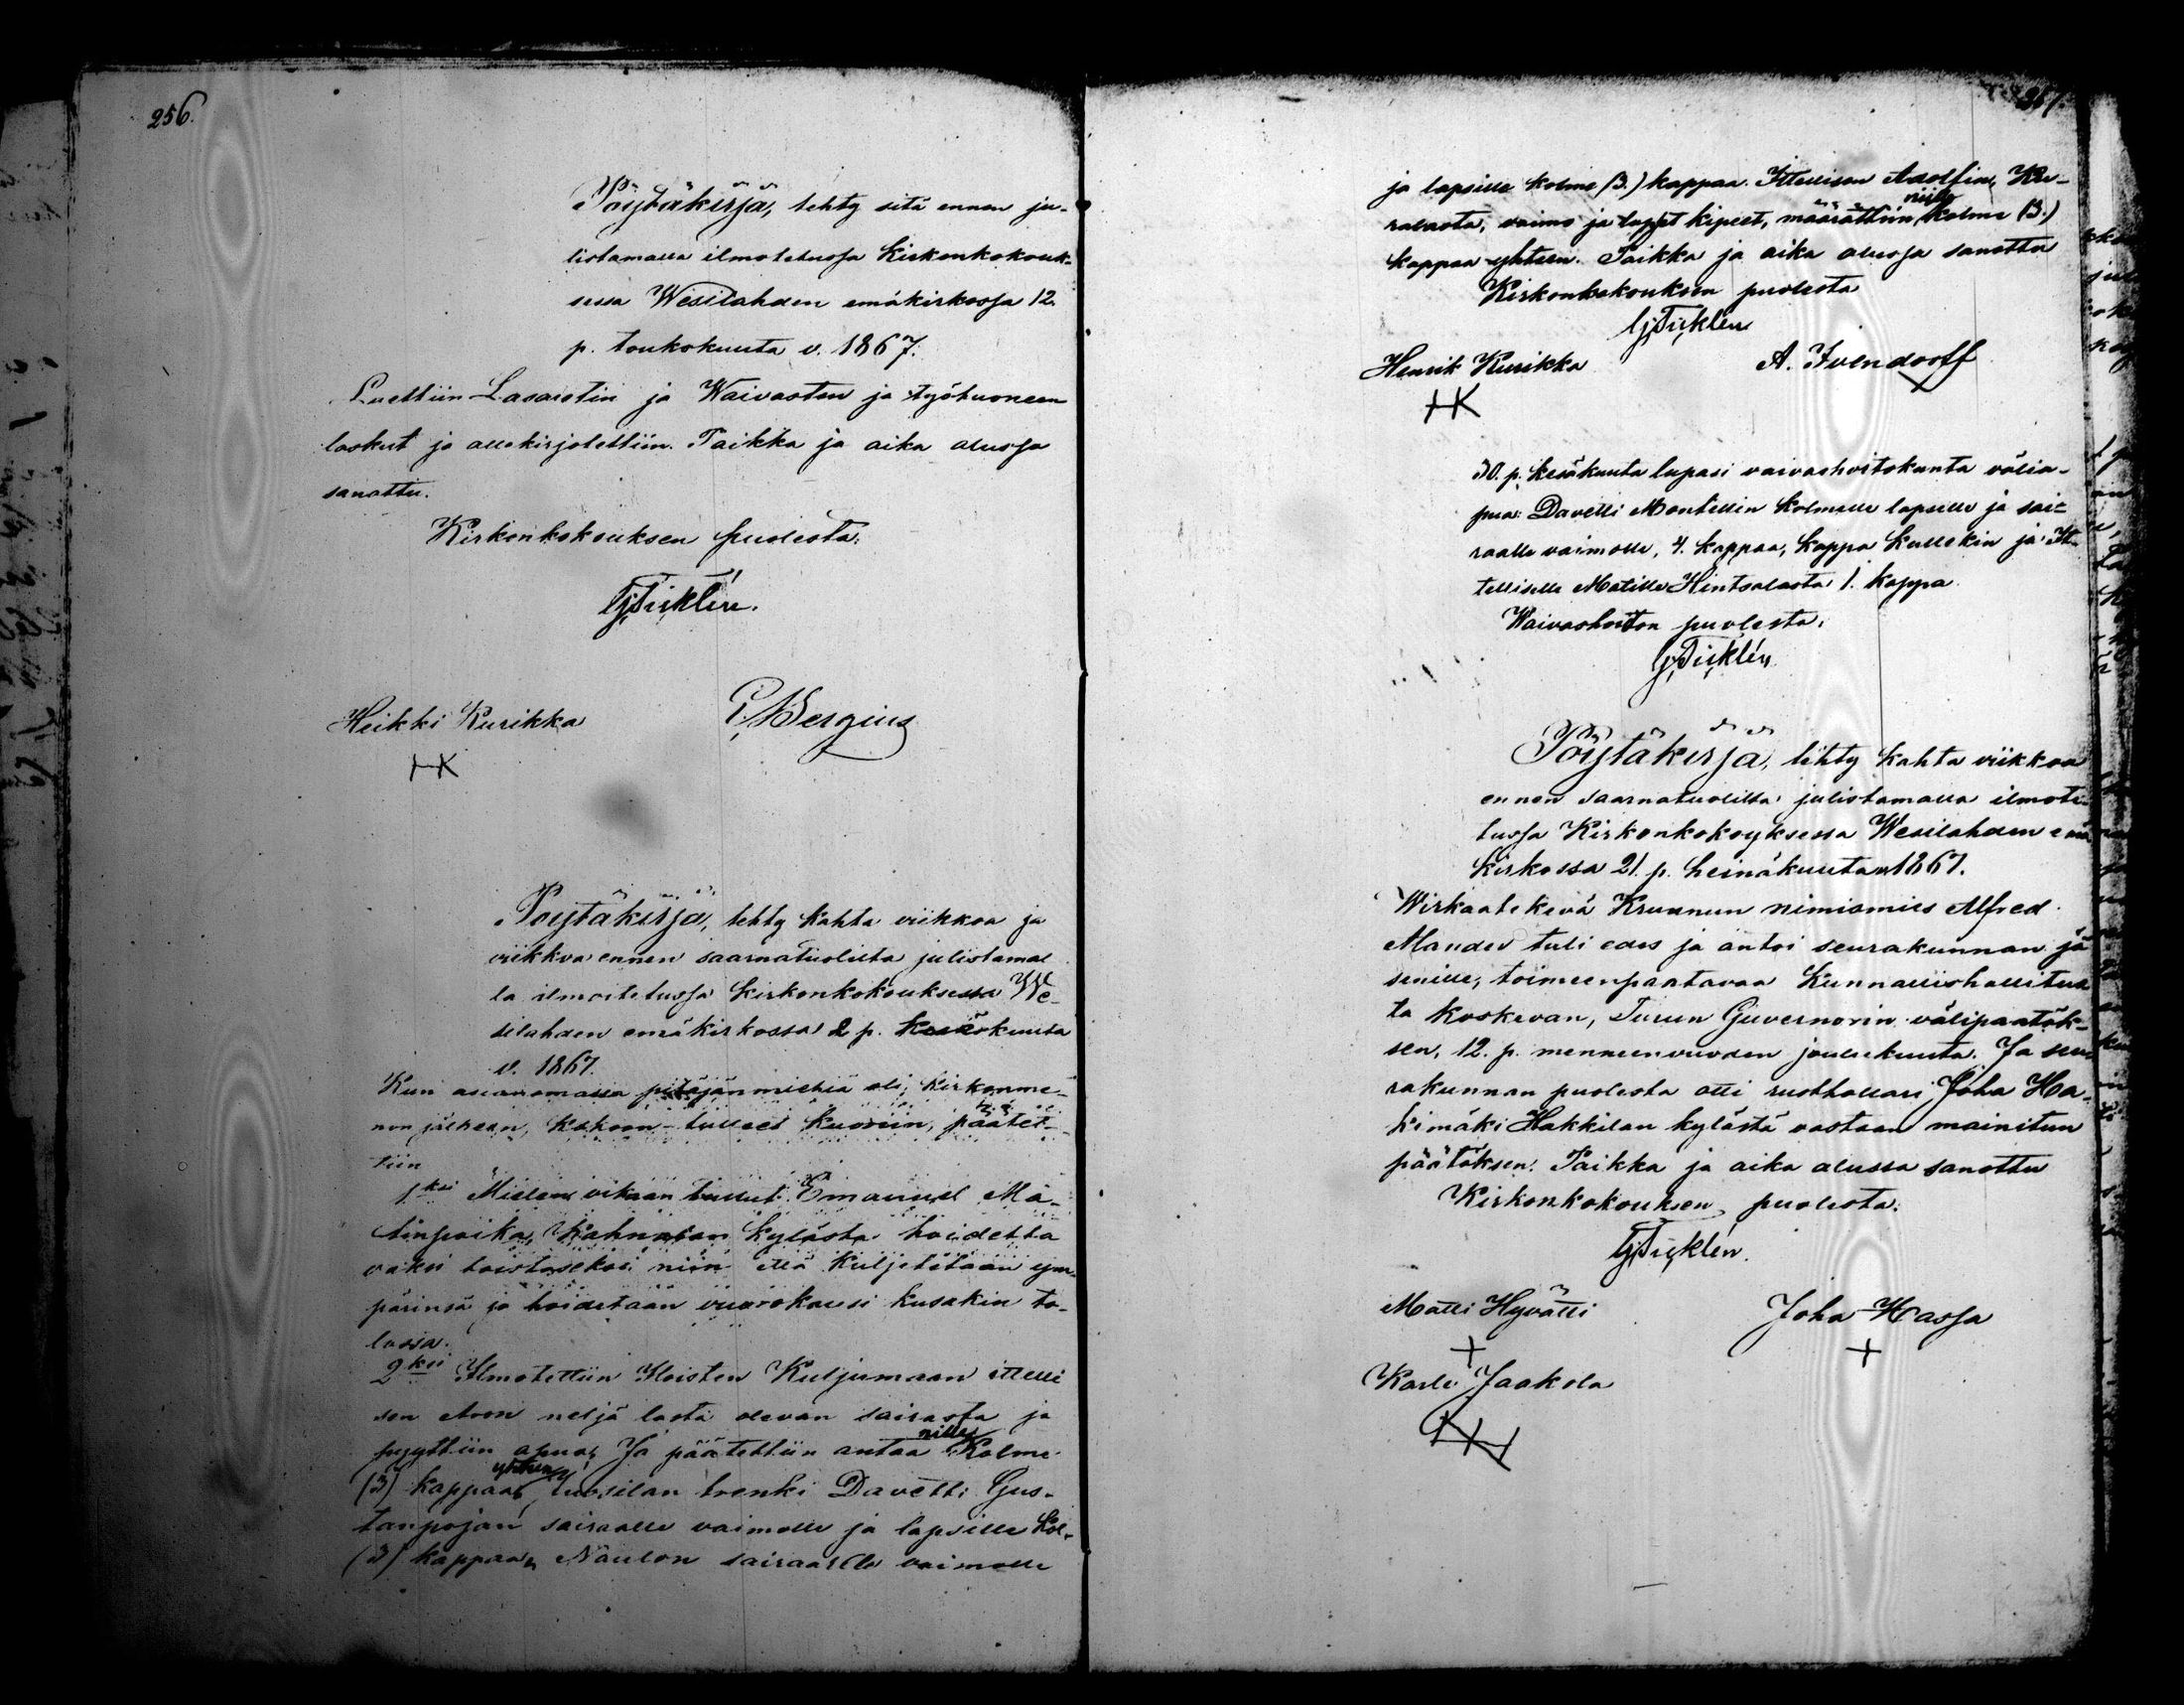 256.
Pöytäkirja, tehty sitä ennen ju-
listamalla ilmotetussa Kirkonkokouk-
sessa Wesilahden emäkirkossa 12.
p. toukokuuta v. 1867.
Luettiin Lasaretin ja Waivasten ja työhuoneen
laskut ja allekirjotettiin. Paikka ja aika alussa
sanottu.
Kirkonkokouksen puolesta:
GjTicklén.
Heikki Kurikka
HK
Bergius
Pöytäkirja, tehty kahta viikkoa ja
viikkoa ennen saarnatuolista julistamal
la ilmoitetussa kirkonkokouksessa We-
silahden emäkirkossa 2 p. kesäkuuta
v. 1867.
Kun asianomasia pitäjänmiehiä oli, kirkonme-
non jälkeen, kokoon tulleet kuoriin, päätet-
tiin
1ksi Mielen vikaan tullut Emanuel Ma-
tinpoika, Kahnalan kylästä hoidetta
vaksi toistaseksi niin että kuljetetaan ym-
pärinsä ja hoidetaan vuorokausi kusakin ta-
lossa.
2ksi Ilmotettiin Iloisten Kuljumaan ittelli
sen Aron neljä lasta olevan sairasta ja
pyyttiin apua; Ja päätettiin antaa nille Kolme
(3) kappaa yhteen, Tuosilan trenki Davetti Gus-
tanpojan sairaalle vaimolle ja lapsille kol-
(3) kappaa, Naulon sairaaslle vaimolle
257.
ja lapsille kolme (3.) kappaa. Ittellisen Adolfin, Ku-
ralasta, vaimo ja lapset kipeet, määrättiin niile kolme (3.)
kappaa yhteen. Paikka ja aika alussa sanottu
Kirkonkokouksen puolesta
GjTicklén
Henrik Kurikka
HK
A. Ivendorff
30. p. kesäkuuta lupasi vaivashoitokunta välia-
pua: Davetti Montellin kolmelle lapselle ja sai-
raalle vaimolle, 4. kappaa, kappa kullekin ja It-
telliselle Matille Hintsalasta 1. kappa
Waivashoiton puolesta,
GjTicklén
Pöytäkirja, tehty kahta viikkoa
ennen saarnatuolilta julistamalla ilmote-
tussa Kirkonkokouksessa Wesilahden emä
kirkossa 21. p. heinäkuuta 1867.
Wirkaatekevä Kruunun nimismies Alfred
Mander tuli edes ja antoi seurakunnan jä
senille, toimeenpantavaa Kunnallishallitus
ta koskevan, Turun Guvernorin välipäätök-
sen, 12. p. menneenvuoden joulukuuta. Ja seu
rakunnan puolesta otti rusthollari Joha Ha-
kimäki Hakkilan kylästä vastaan mainitun
päätöksen. Paikka ja aika alussa sanottu
Kirkonkokouksen puolesta:
GjTicklén.
Matti Hyvätti
+
Joha Hassa
+
Karle Jaakola